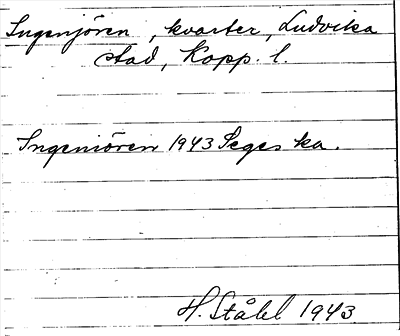 Ingenjören, kvarter, Ludvika
stad, Kopp. l.
Ingeniören 1943 Seges ka.
H. Ståhl 1943